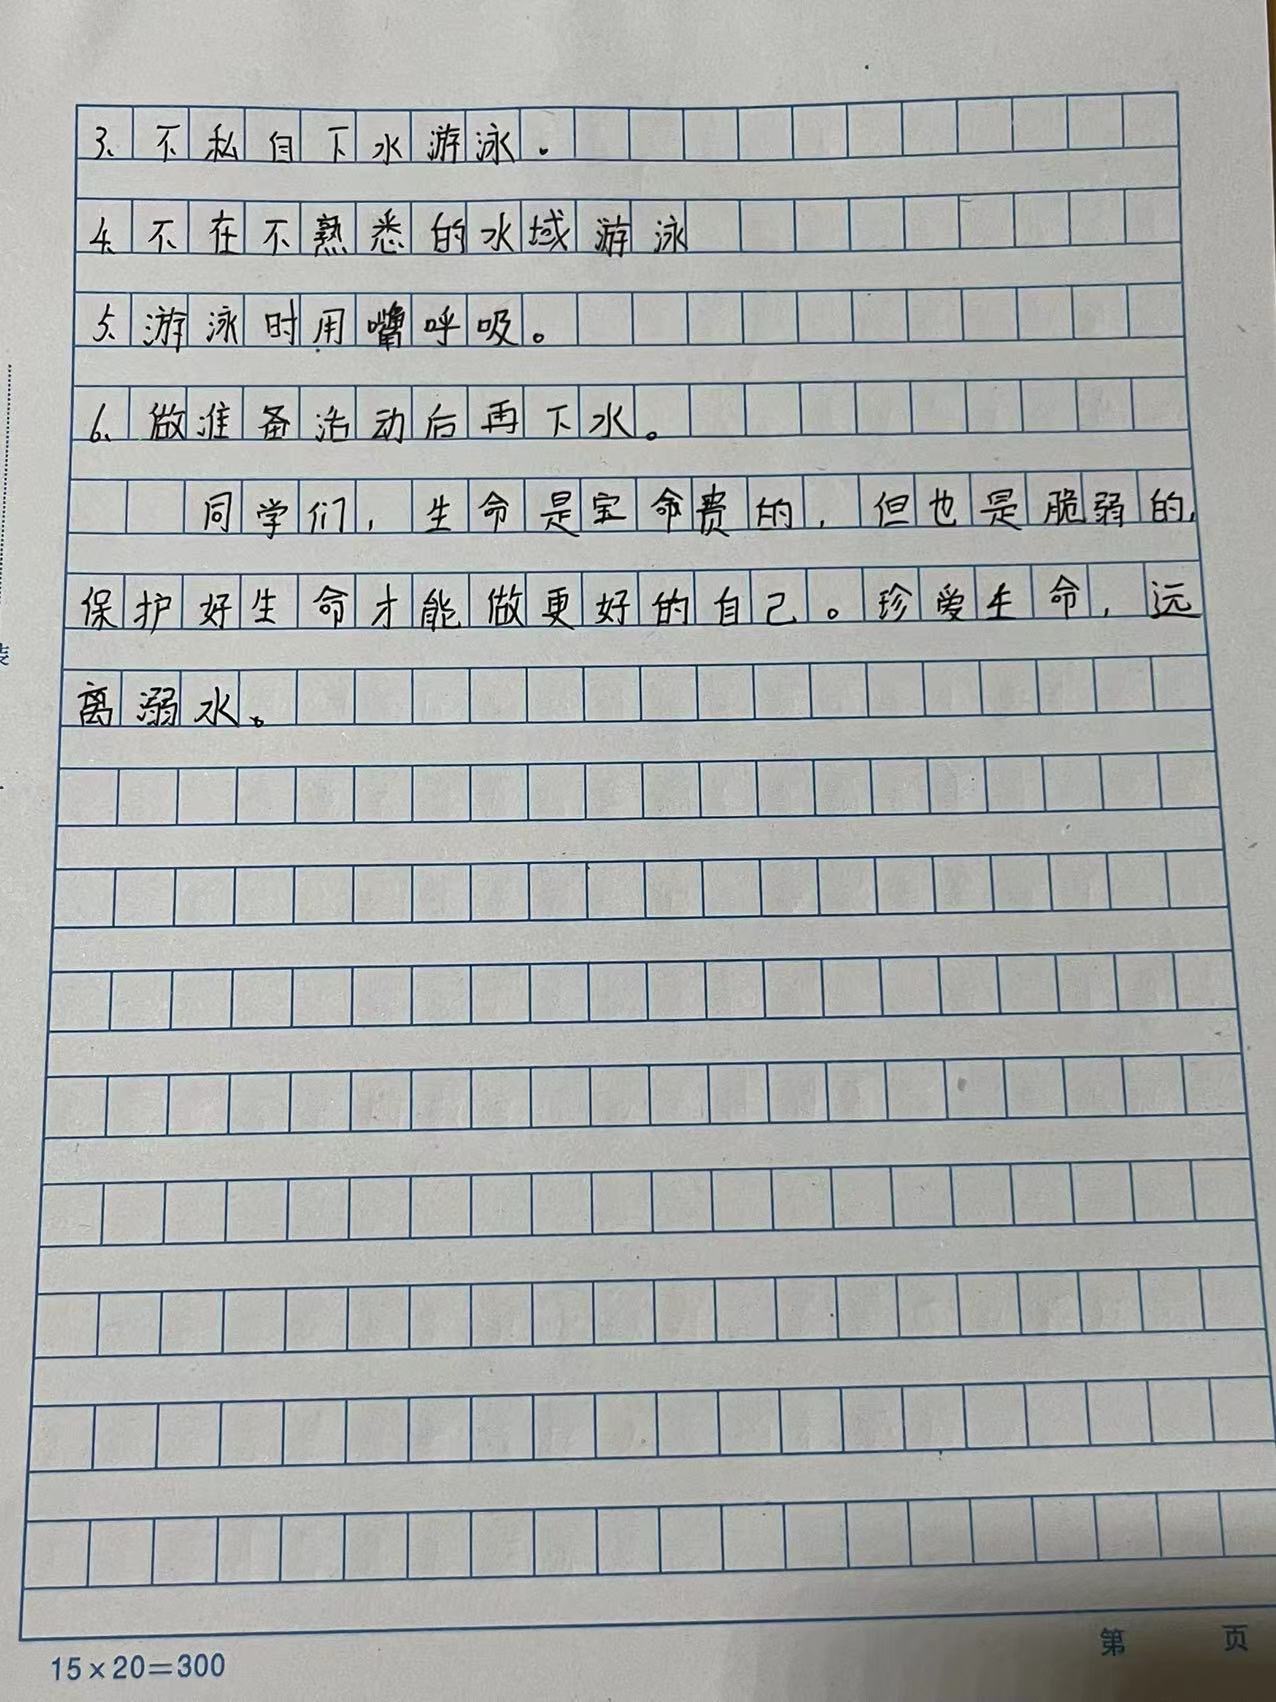 3、不私自下水游泳。
4、不在不熟悉的水域游泳
5、游泳时用嘴呼吸。
6、做准备活动后再下水。
同学们，生命是宝命贵的，但也是脆弱的，
保护好生命才能做更好的自己。珍爱生命，远
离溺水。
15×20=300
第 页